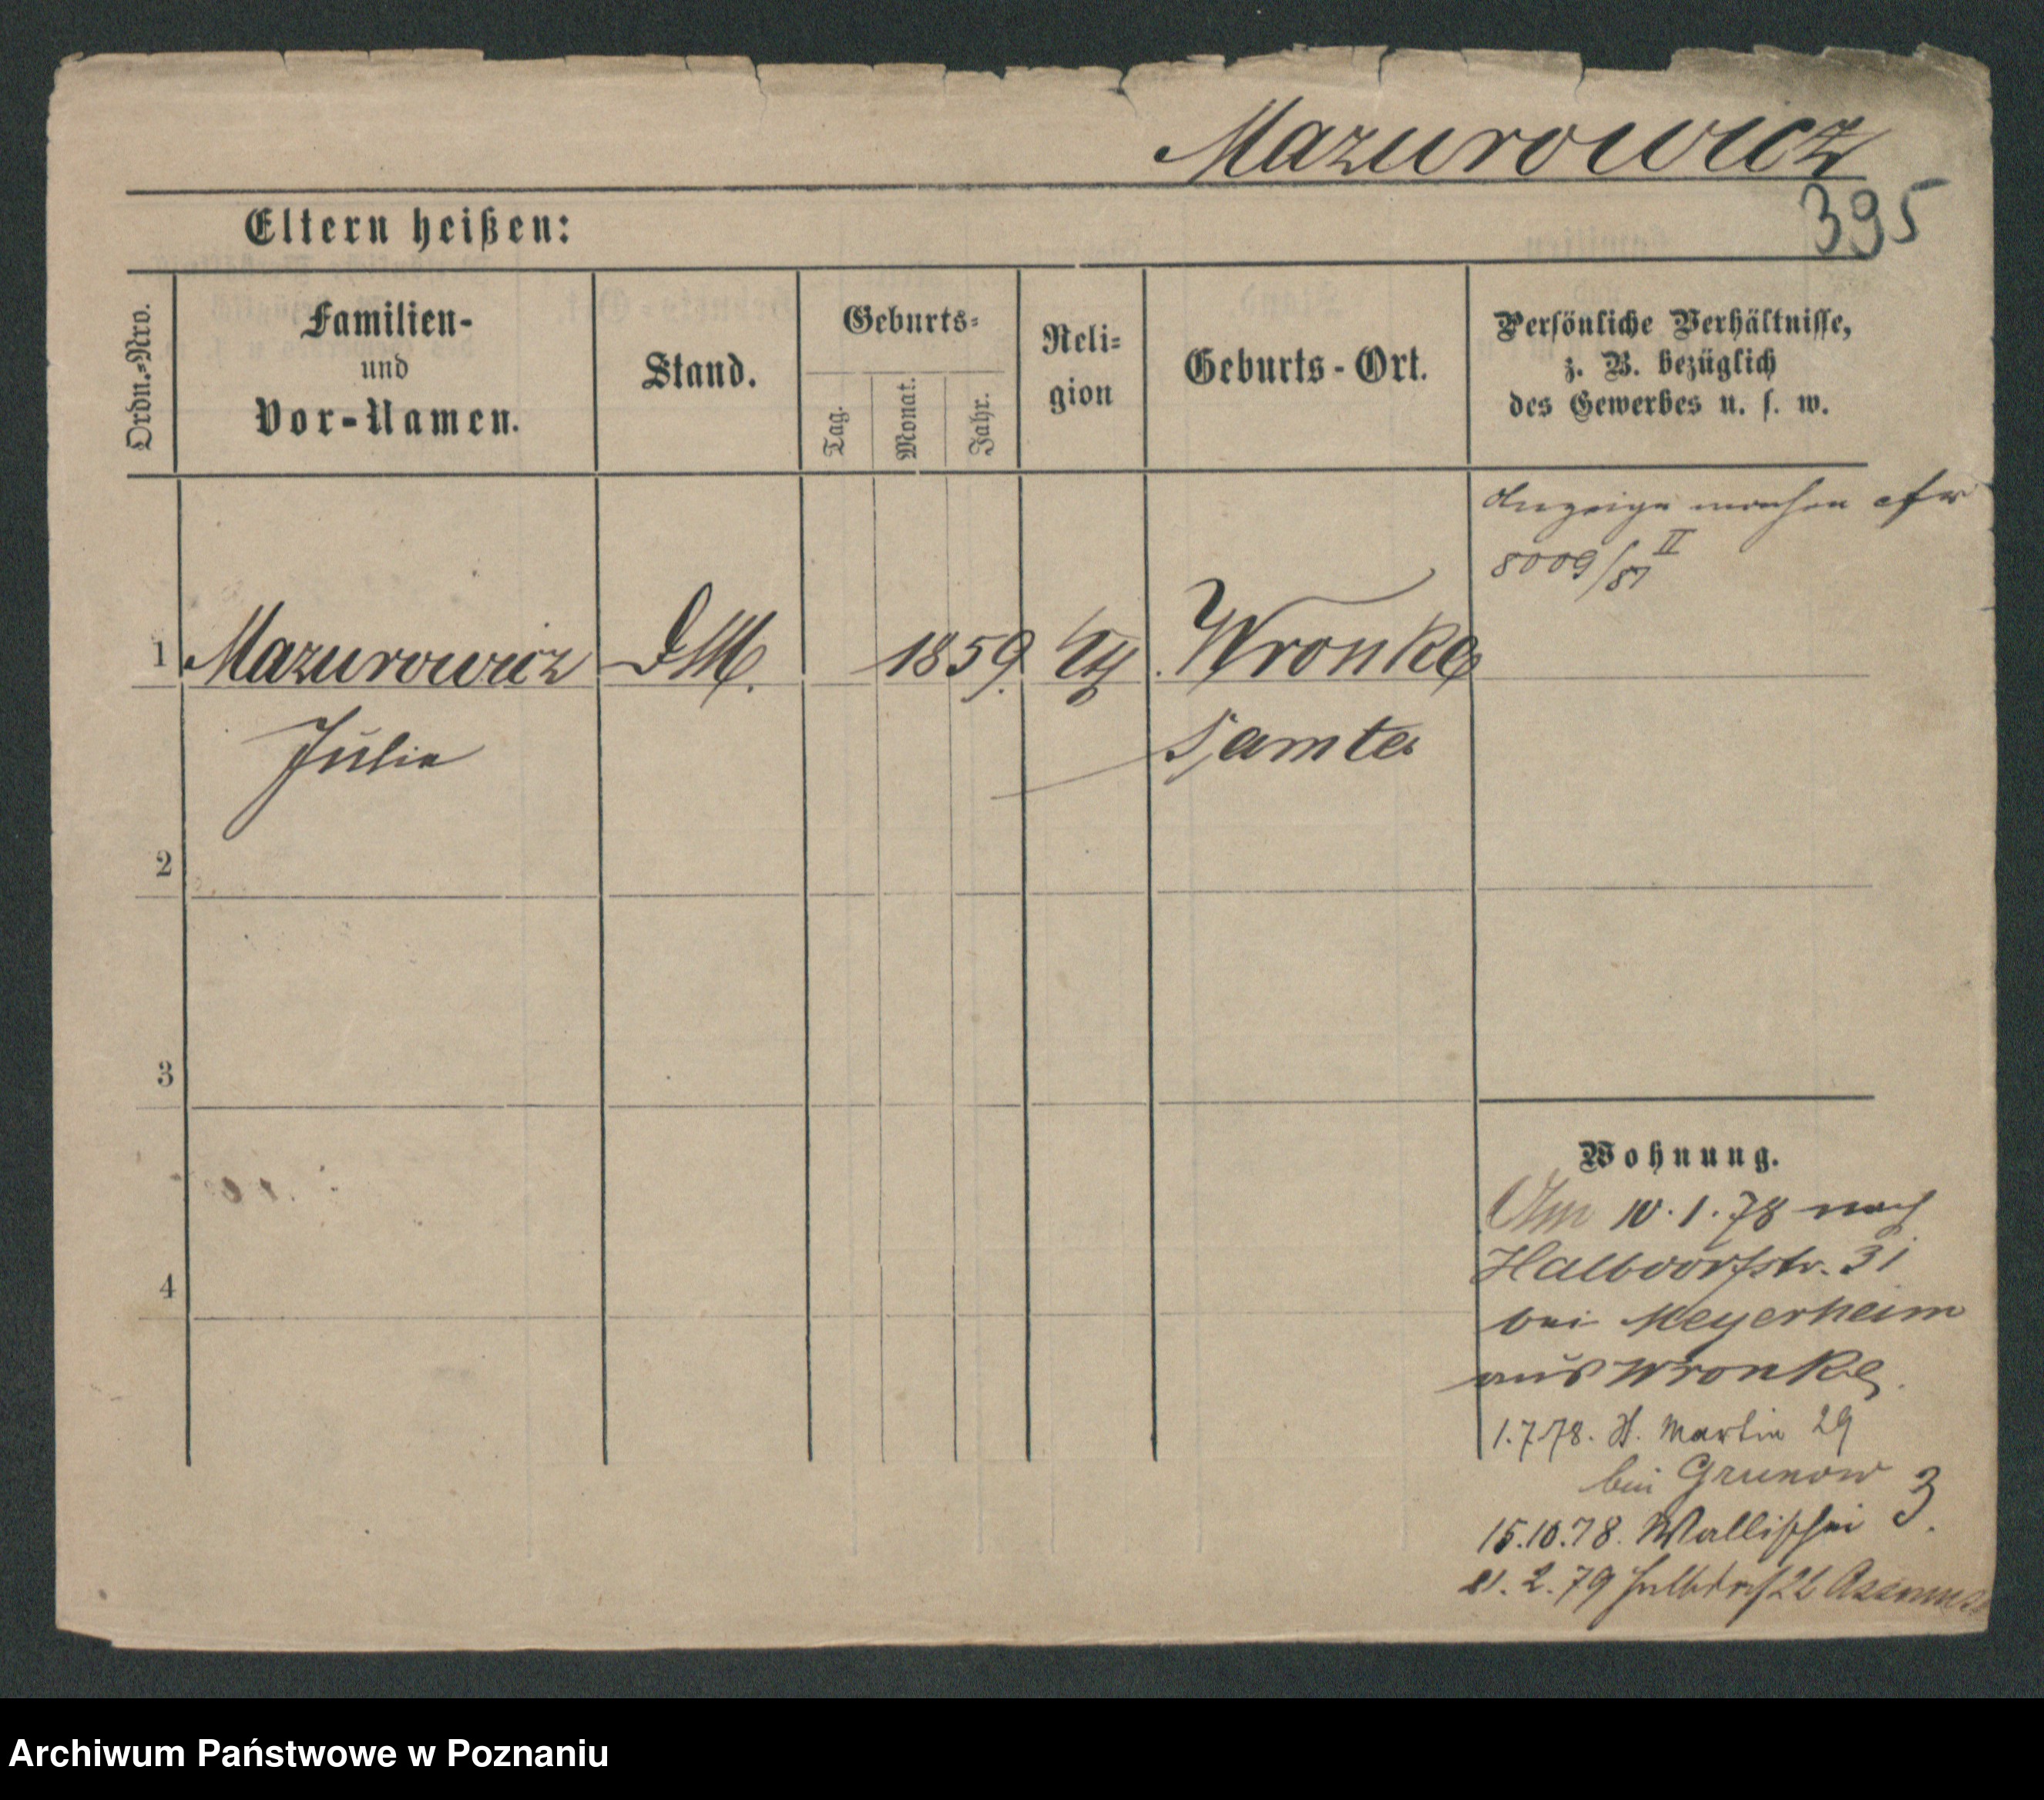 Mazurowicz
395
Eltern heißen:
Ordn.-Nro.
Familien-
und
Vor-Namen.
Stand.
Geburts-
Tag.
Monat.
Jahr.
Reli-
gion
Geburts-Ort.
Persönliche Verhältnisse,
z. B. bezüglich
des Gewerbes u. s. w.
Anzeige machen cfr
8009/87 II
1 Mazurowicz DM. 1859. Wronke
Julie Samter
2
3
4
Wohnung.
10.1.78 nach
Halbdorfstr. 31
bei Meyerheim
aus Wronke.
1.7.78. St. Martin 29
bei Grunow
15.10.78. Wallischei 3.
21.2.79 Halbdorf 22
Archiwum Państwowe w Poznaniu